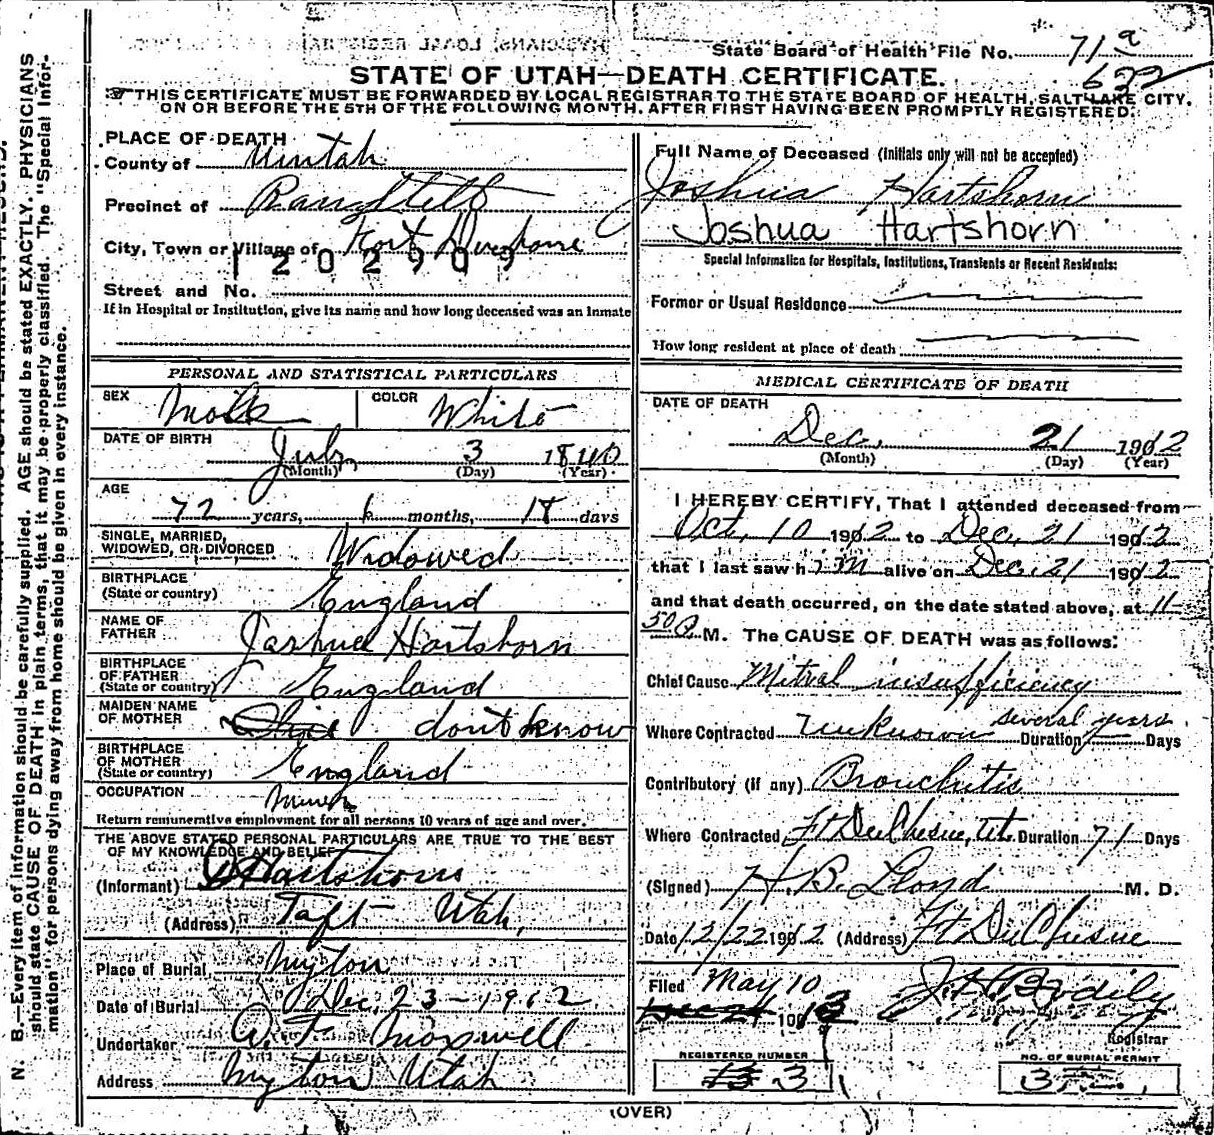 State Board of Health File No. 71 a
622
STATE OF UTAH—DEATH CERTIFICATE.
THIS CERTIFICATE MUST BE FORWARDED BY LOCAL REGISTRAR TO THE STATE BOARD OF HEALTH, SALT LAKE CITY,
ON OR BEFORE THE 5TH OF THE FOLLOWING MONTH, AFTER FIRST HAVING BEEN PROMPTLY REGISTERED.
N. B.—Every item of information should be carefully supplied. AGE should be stated EXACTLY. PHYSICIANS
should state CAUSE OF DEATH in plain terms, that it may be properly classified. The "Special Infor-
mation" for persons dying away from home should be given in every instance.
PLACE OF DEATH
County of Uintah
Precinct of Randlett
City, Town or Village of Fort Duchesne
1202909
Street and No.
If in Hospital or Institution, give its name and how long deceased was an Inmate
PERSONAL AND STATISTICAL PARTICULARS
SEX Male COLOR White
DATE OF BIRTH 3 1840
(Month) (Day) (Year)
AGE
72 years, 6 months, 18 days
SINGLE, MARRIED,
WIDOWED, OR DIVORCED Widowed
BIRTHPLACE
(State or country) England
NAME OF
FATHER Joshua Hartshorn
BIRTHPLACE
OF FATHER
(State or country) England
MAIDEN NAME
OF MOTHER dont know
BIRTHPLACE
OF MOTHER
(State or country) England
OCCUPATION Miner
Return remunerative employment for all persons 10 years of age and over.
THE ABOVE STATED PERSONAL PARTICULARS ARE TRUE TO THE BEST
OF MY KNOWLEDGE AND BELIEF
(Informant) Hartshorn
(Address) Taft Utah,
Place of Burial Myton
Date of Burial Dec. 23 - 1912
Undertaker Maxwell
Address Myton Utah
Full Name of Deceased (Initials only will not be accepted)
Joshua Hartshorn
Joshua Hartshorn
Special Information for Hospitals, Institutions, Transients or Recent Residents:
Former or Usual Residence
How long resident at place of death
MEDICAL CERTIFICATE OF DEATH
DATE OF DEATH
Dec. 21 1912
(Month) (Day) (Year)
I HEREBY CERTIFY, That I attended deceased from
Oct, 10 1912 to Dec, 21 1912
that I last saw him alive on Dec. 21 1912
and that death occurred, on the date stated above, at 11-
50 M. The CAUSE OF DEATH was as follows:
Chief Cause Mitral insufficiency
several years
Where Contracted Unknown Duration Days
Contributory (if any) Bronchitis
Where Contracted Ft DuChesne, Ut. Duration 71 Days
(Signed) H. B. Lloyd M. D.
Date 12/22 1912 (Address) Ft DuChesne
Filed May 10
1913
Registrar
REGISTERED NUMBER
NO. OF BURIAL PERMIT
(OVER)